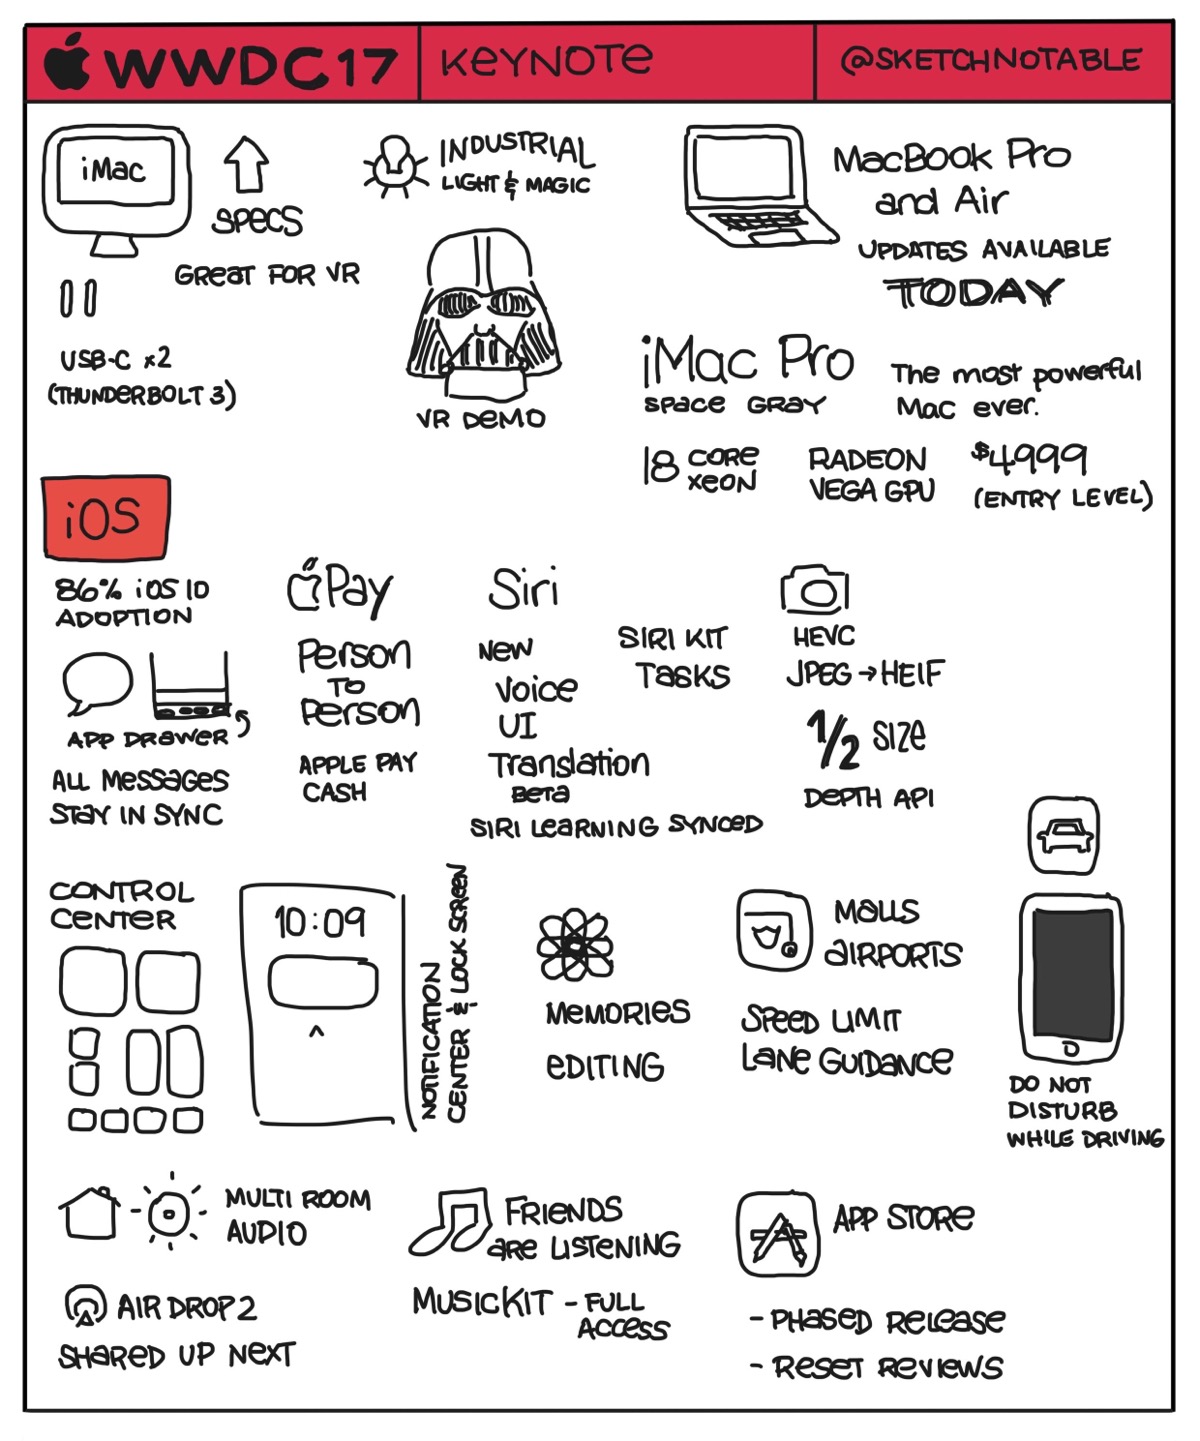 WWDC17
KEYNOTE
@SKETCHNOTABLE
iMac
SPECS
GREAT FOR VR
USB-C x2
(THUNDERBOLT 3)
INDUSTRIAL
LIGHT & MAGIC
VR DEMO
MacBook Pro
and Air
UPDATES AVAILABLE
TODAY
iMac Pro
SPACE GRAY
The most powerful
Mac ever.
18 CORE
XEON
RADEON
VEGA GPU
$4999
(ENTRY LEVEL)
iOS
86% iOS 10
ADOPTION
APP DRAWER
ALL MESSAGES
STAY IN SYNC
Pay
Person
TO
Person
APPLE PAY
CASH
Siri
NEW
Voice
UI
Translation
BETA
SIRI LEARNING SYNCED
SIRI KIT
TASKS
HEVC
JPEG → HEIF
1/2 SIZE
DEPTH API
CONTROL
CENTER
10:09
NOTIFICATION
CENTER & LOCK SCREEN
MEMORIES
EDITING
MALLS
AIRPORTS
SPEED LIMIT
LANE GUIDANCE
DO NOT
DISTURB
WHILE DRIVING
MULTI ROOM
AUDIO
AIR DROP 2
SHARED UP NEXT
FRIENDS
ARE LISTENING
MUSICKIT - FULL
ACCESS
APP STORE
- PHASED RELEASE
- RESET REVIEWS